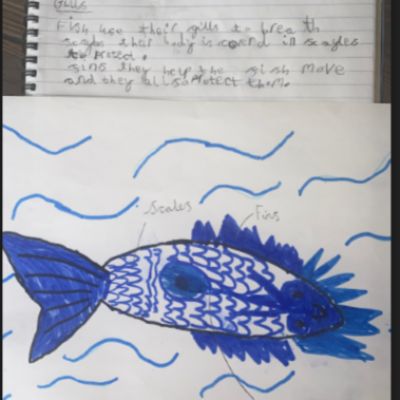 Gills
Fish use their gills to breath
scayls their body is coverd in scayles
to protect.
gins they help the gish move
and they allso Protect them.
Scales
Fins